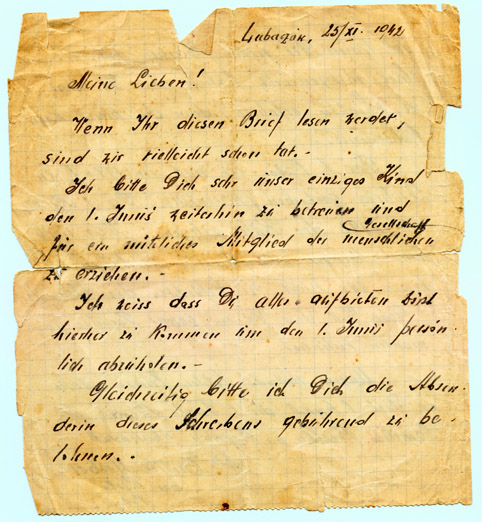 Lubaczów, 25/XI. 1942
Meine Lieben!
Wenn Ihr diesen Brief lesen werdet,
sind wir vielleicht schon tot.-
Ich bitte Dich sehr unser einziges Kind
den 1. Junis weiterhin zu betreuen und
Gesellschaft
für ein nützliches Mitglied der menschlichen
zu erziehen.-
Ich weiss dass Du alles aufbieten wirst
hierher zu kommen um den 1. Junis persön-
lich abzuholen.-
Gleichzeitig bitte ich Dich die Absen-
derin dieses Schreibens gebührend zu be-
lohnen.-